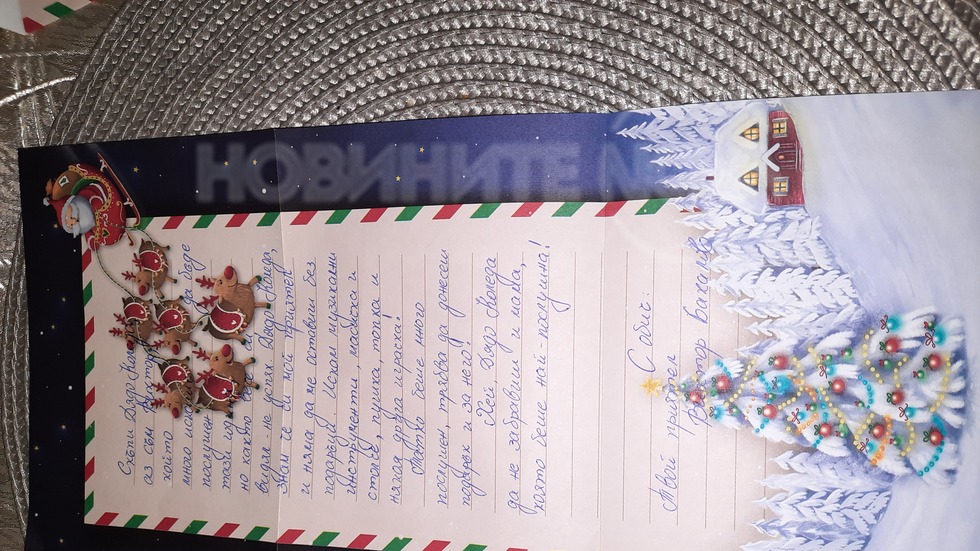 Скъпи Дядо Коледа,
аз съм Виктор,
който
много исках да бъде
послушен
тази
но както вече си
видял - не успях. Дядо Коледа,
знам че си мой приятел
и няма да ме оставиш без
подаръци. Искам музикални
инструменти, масичка и
столче, пушка, топка и
някоя друга играчка!
Татко беше много
послушен, трябва да донесеш
подарък и за него!
Хей, Дядо Коледа
да не забравиш и мама,
която беше най-послушна!
С обич:
Твой приятел
Виктор
НОВИНИТЕ